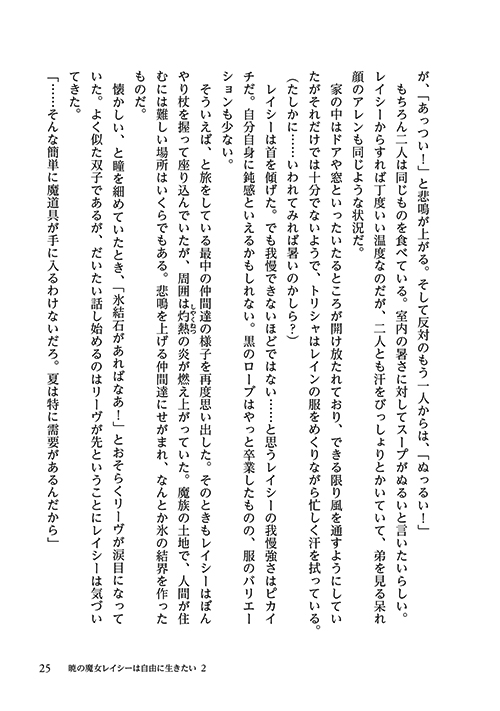 が、「あっつい！」と悲鳴が上がる。そして反対のもう一人からは、「ぬっるい！」
もちろん二人は同じものを食べている。室内の暑さに対してスープがぬるいと言いたいらしい。
レイシーからすれば丁度いい温度なのだが、二人とも汗をびっしょりとかいていて、弟を見る呆れ
顔のアレンも同じような状況だ。
家の中はドアや窓といったいたるところが開け放たれており、できる限り風を通すようにしてい
たがそれだけでは十分でないようで、トリシャはレインの服をめくりながら忙しく汗を拭っている。
（たしかに……いわれてみれば暑いのかしら？）
レイシーは首を傾げた。でも我慢できないほどではない……と思うレイシーの我慢強さはピカイ
チだ。自分自身に鈍感といえるかもしれない。黒のローブはやっと卒業したものの、服のバリエー
ションも少ない。
そういえば、と旅をしている最中の仲間達の様子を再度思い出した。そのときもレイシーはぼん
やり杖を握って座り込んでいたが、周囲は灼熱の炎が燃え上がっていた。魔族の土地で、人間が住
むには難しい場所はいくらでもある。悲鳴を上げる仲間達にせがまれ、なんとか氷の結界を作った
ものだ。
懐かしい、と瞳を細めていたとき、「氷結石があればなあ！」とおそらくリーヴが涙目になって
いた。よく似た双子であるが、だいたい話し始めるのはリーヴが先ということにレイシーは気づい
てきた。
「……そんな簡単に魔道具が手に入るわけないだろ。夏は特に需要があるんだから」
しゃくねつ
25 暁の魔女レイシーは自由に生きたい 2